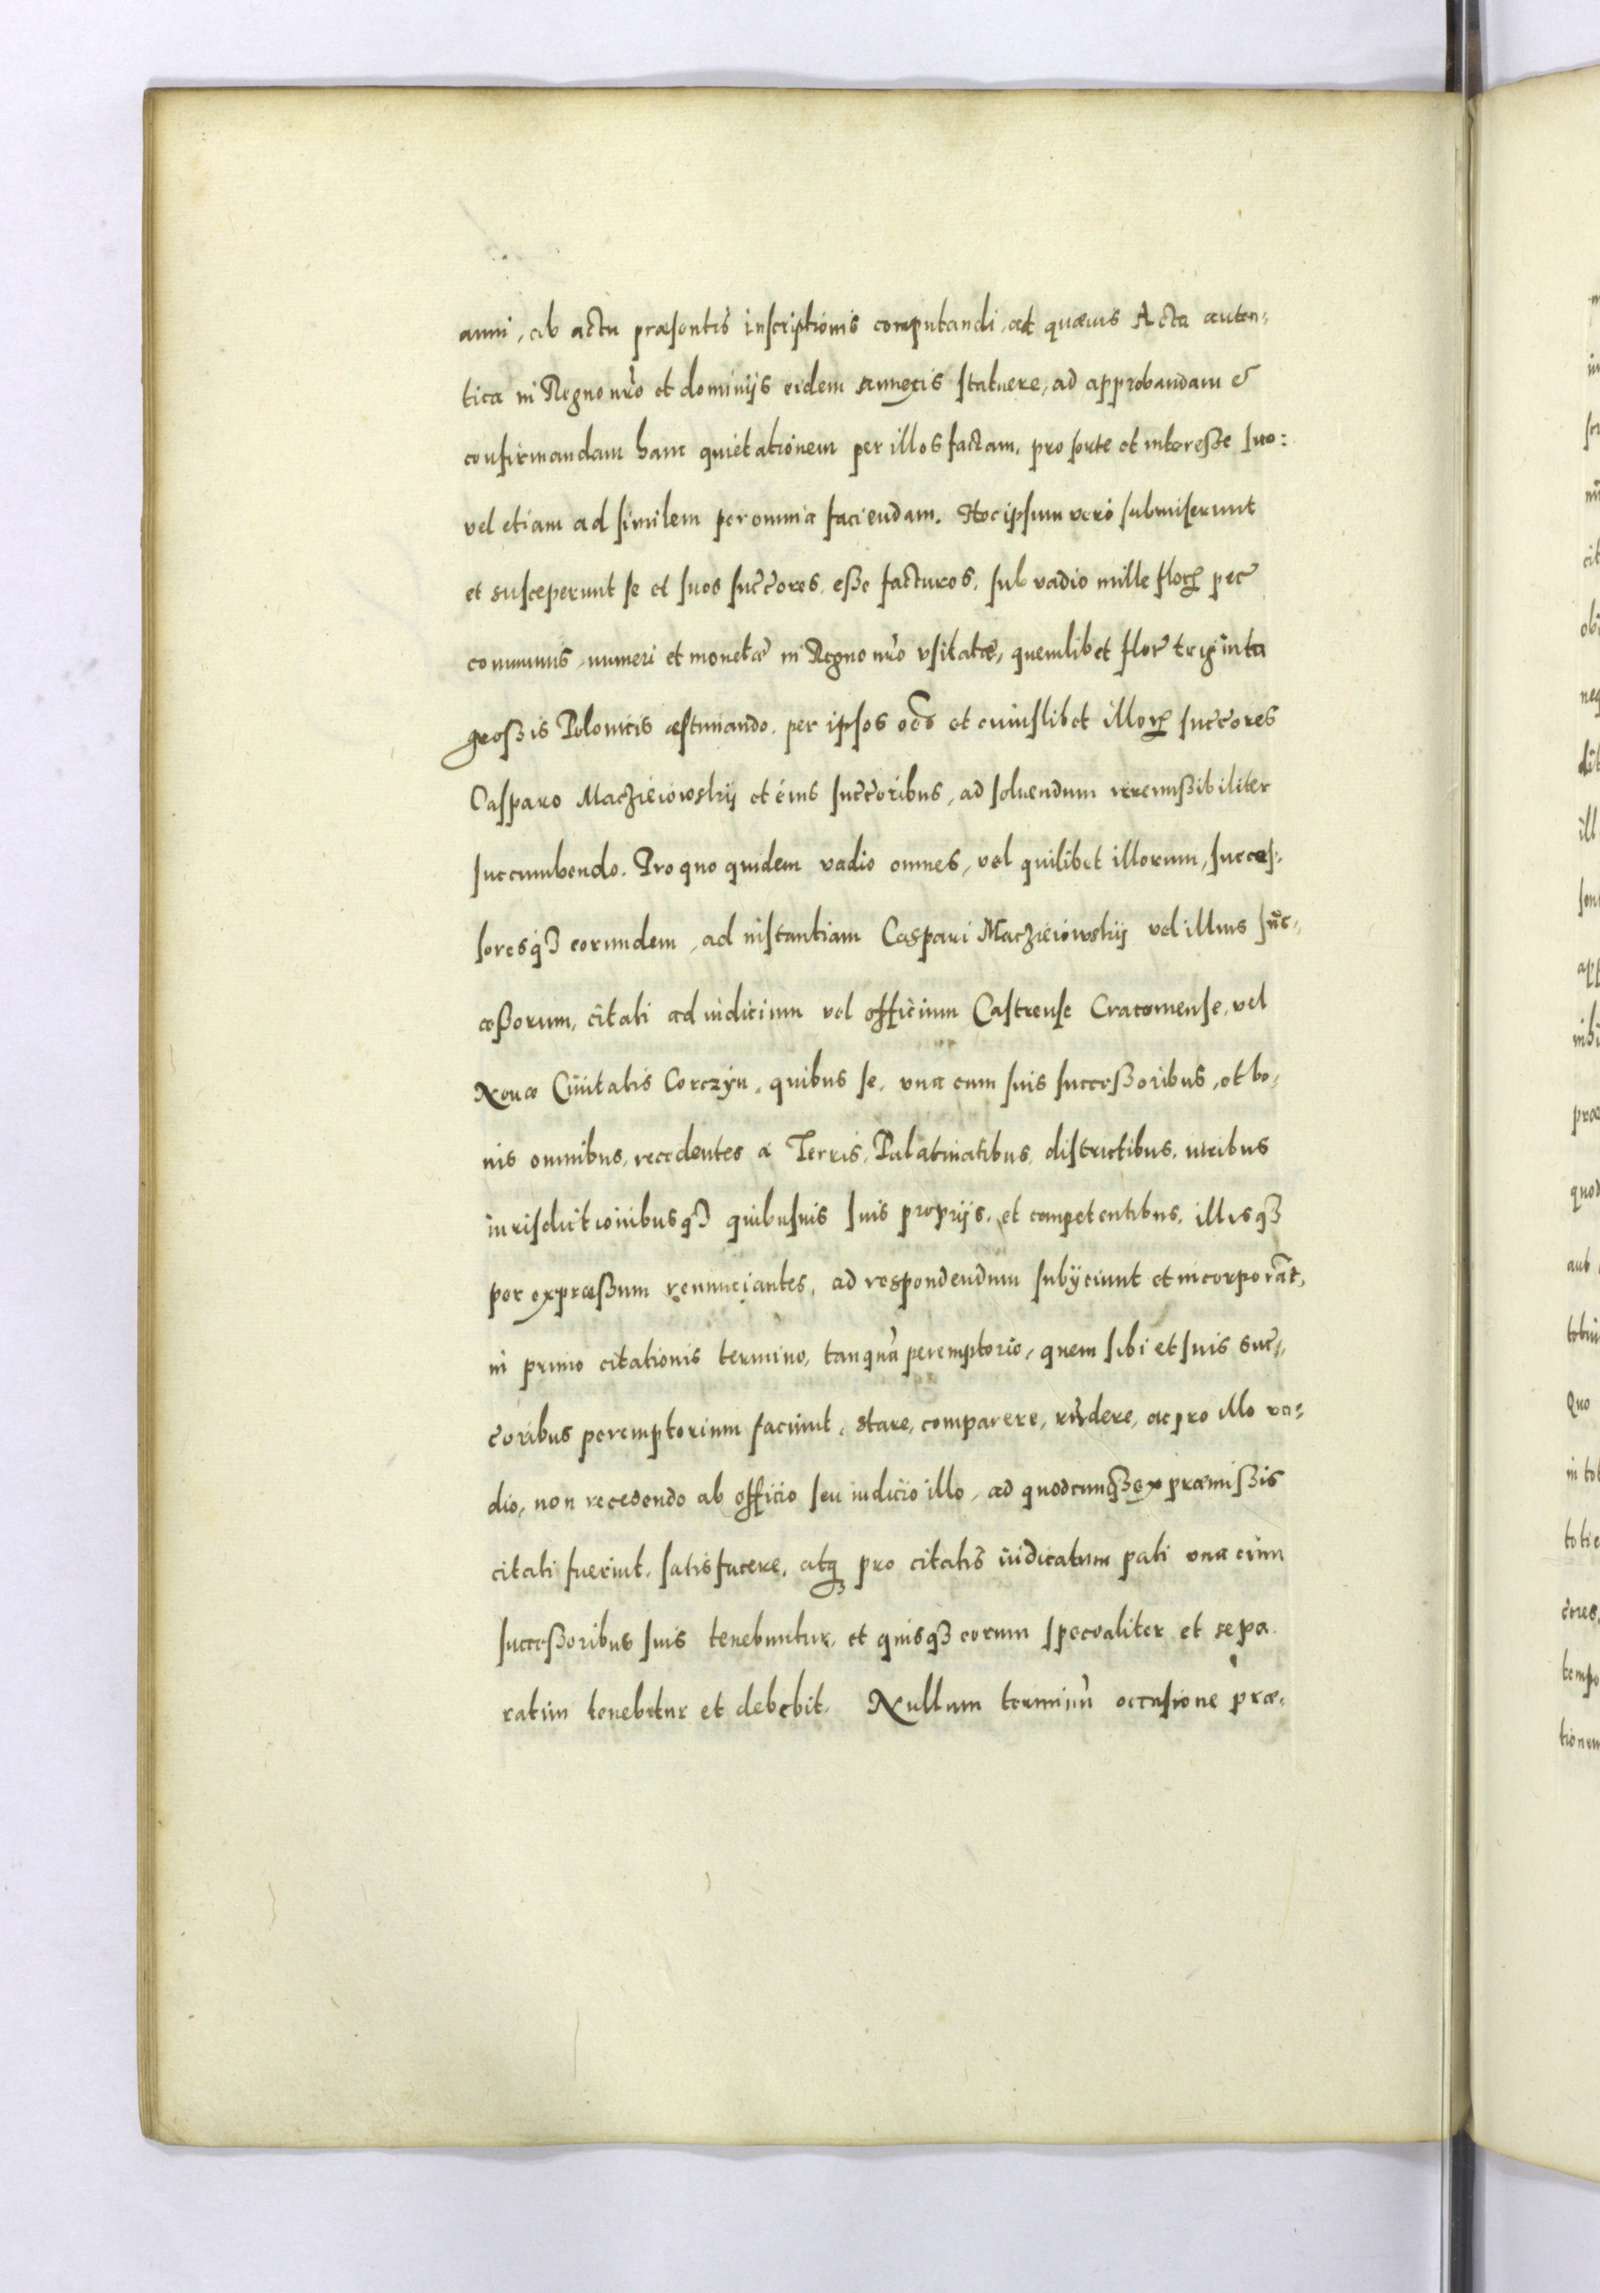 anni, ab actu præsentis inscriptionis computandi, ad quævis Acta auten-
tica in Regno nr̃o et dominijs eidem annexis statuere, ad approbandam &
confirmandam hanc quietationem per illos factam, pro sorte et interesse suo:
vel etiam ad similem per omnia faciendam. Hoc ipsum vero submiserunt
et susceperunt se et suos succ̃ores, esse facturos, sub vadio mille flor pec̃
communis, numeri et monetæ in Regno nr̃o vsitatæ, quemlibet flor̃ triginta
grossis Polonicis æstimando, per ipsos oẽs et cuiuslibet illor succ̃ores
Casparo Maczieiowskij et eius succ̃oribus, ad soluendum irremissibiliter
succumbendo. Pro quo quidem vadio omnes, vel quilibet illorum, succes-
soresq3 eorundem, ad instantiam Caspari Maczieiowskij vel illius suc-
cessorum, citati ad iudicium vel officium Castrense Cracouiense, vel
Nouæ Ciuitatis Corczyn, quibus se, una cum suis successoribus, et bo-
nis omnibus, recedentes a Terris, Palatinatibus, districtibus, iuribus
iurisdictionibusq3 quibusuis suis proprijs, et competentibus, illisq3
per expræssum renunciantes, ad respondendum subijciunt et incorporãt,
in primo citationis termino, tanqua᷈ peremptorio, quem sibi et suis suc̃-
c̃oribus peremptorium faciunt, stare, comparere, rñdere, ac pro illo va-
dio, non recedendo ab officio seu iudicio illo, ad quodcunq3 ex præmissis
citati fuerint, satisfacere, atq3 pro citatis iudicatum pati una cum
successoribus suis tenebuntur, et quisq3 eorum specialiter et sepa
ratim tenebitur et debebit. Nullum terminũ occasione præ-